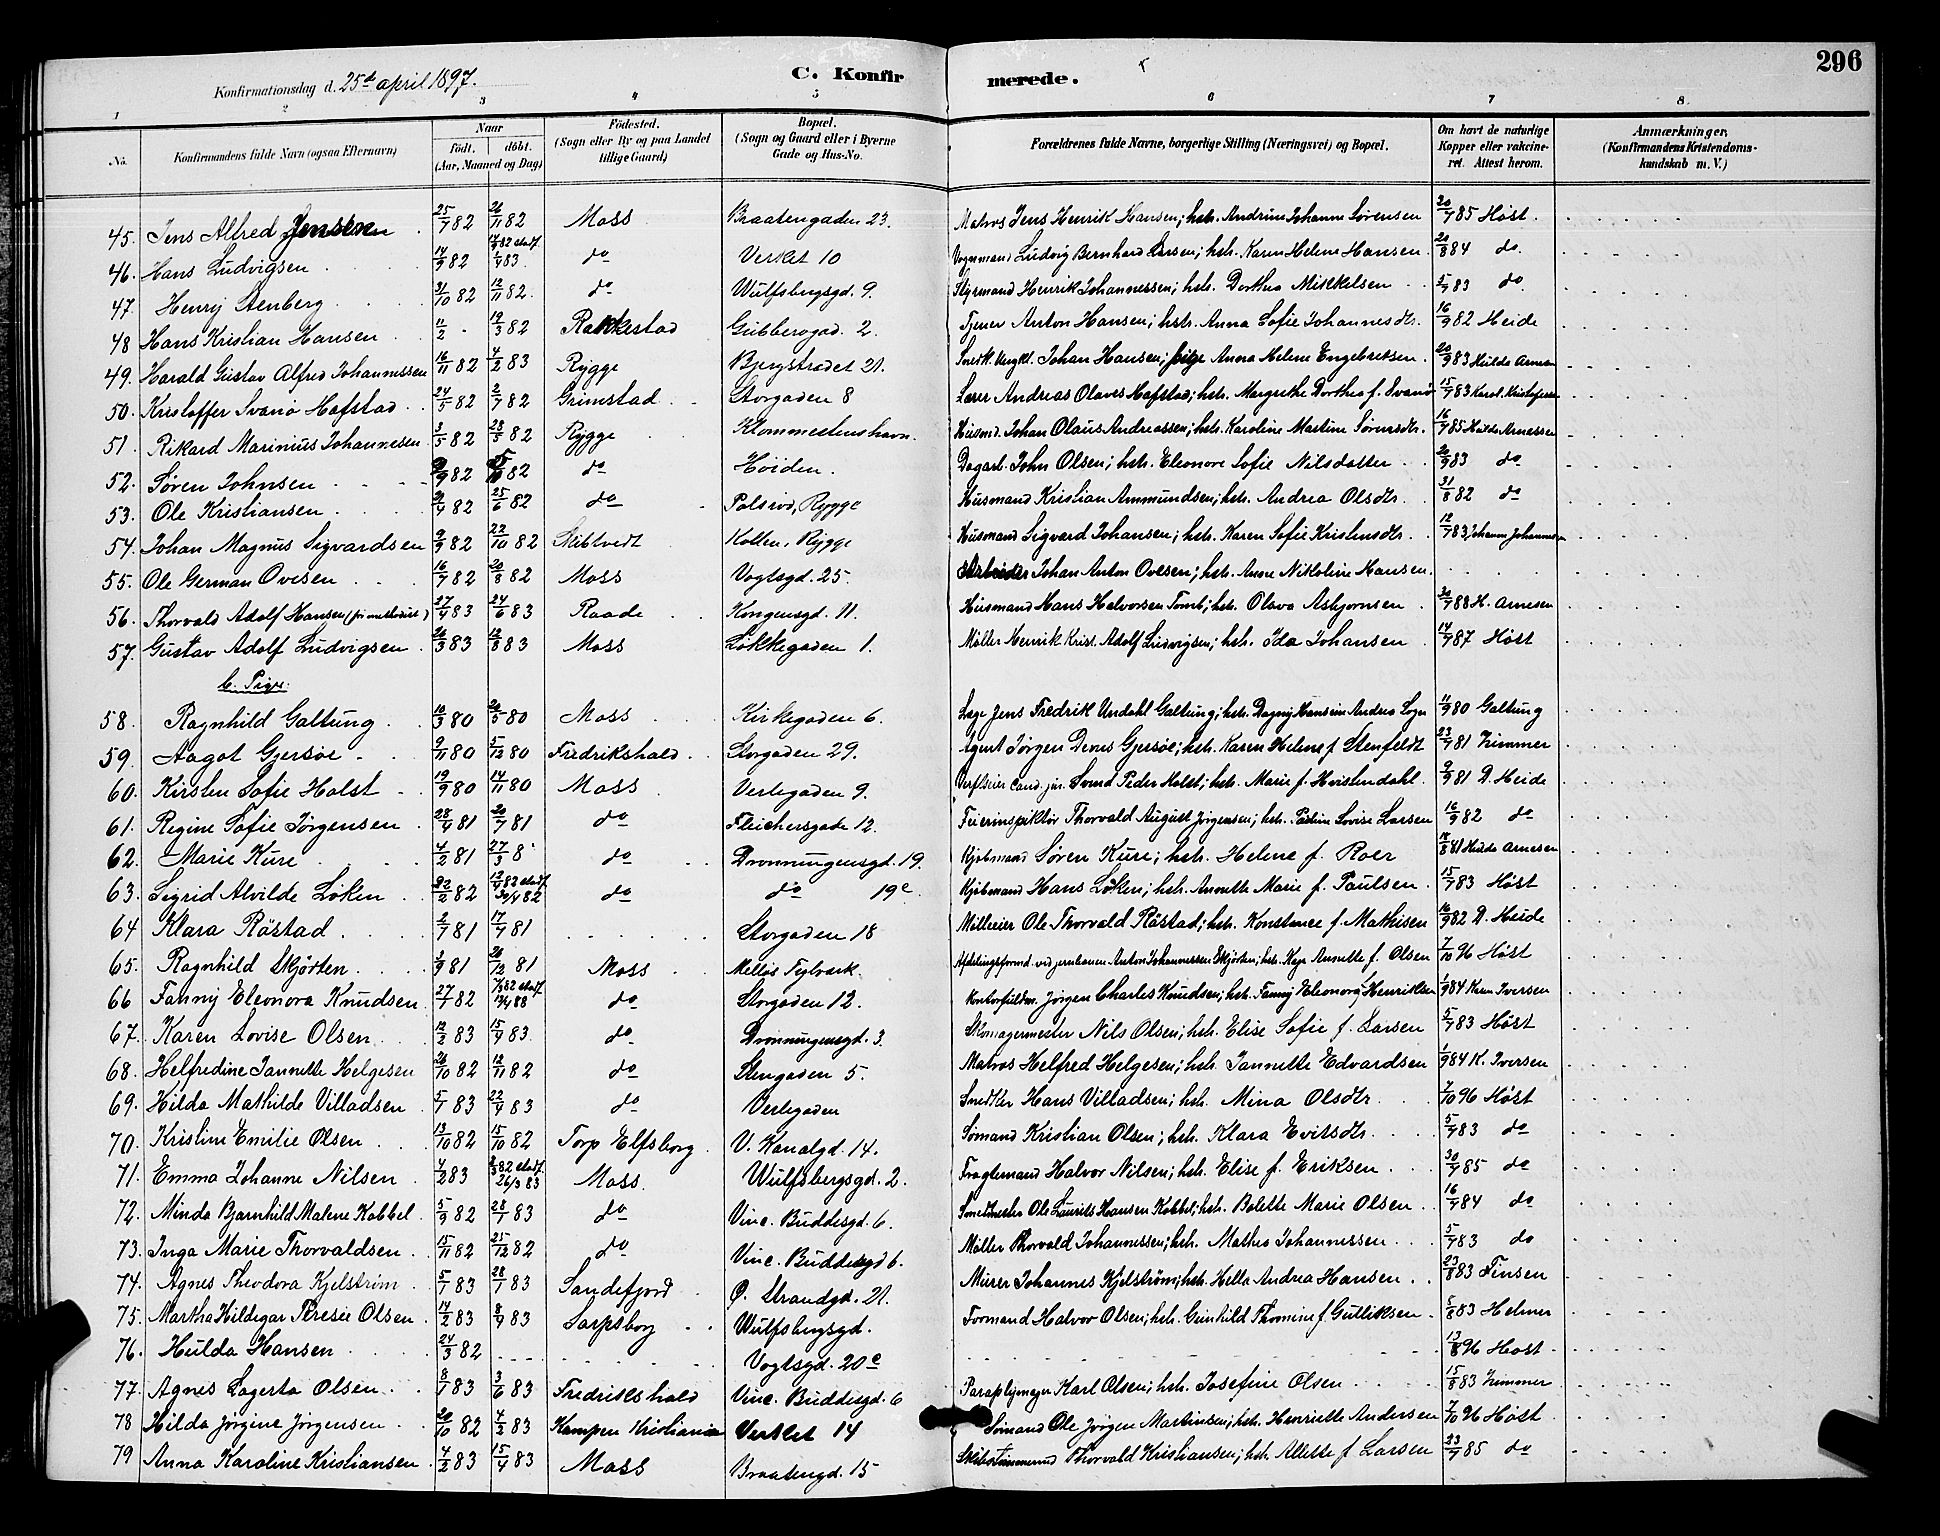 Konfirmationsdag d. 25de april 1897. C. Konfirmerede. 296
1 2 3 4 5 6 7 8
No. Konfirmandens fulde Navn (ogsaa Efternavn) Naar Födt. döbt. (Aar, Maaned og Dag) Födested. (Sogn eller By og paa Landet tillige Gaard) Bopæl. (Sogn og Gaard eller i Byerne Gade og Hus-No. Forældrenes fulde Navne, borgerlige Stilling (Næringsvei) og Bopæl. Om havt de naturlige Kopper eller vakcineret. Attest herom. Anmærkninger, (Konfirmandens Kristendomskundskab m. V.)
45. Jens Alfred Jensen 25/7 82 26/11 82 Moss Braatengaden 23. Matros Jens Henrik Hansen; hstr. Andrine Johanne Sørensen 20/7 85 Høst.
46. Hans Ludvigsen 14/9 82 1/4 83 do Verket 10 Vognmand Ludvig Bernhard Larsen; hstr. Karen Helene Hansen 20/8 84 do
47. Henry Stenberg 31/10 82 12/11 82. do Wulfsbergsgd. 9. Styrmand Henrik Johannessen; hstr. Dorthea Mikkelsen 5/7 83 do
48 Hans Kristian Hansen 11/2 - 19/3 82 Rakkestad Gubberogad. 2. Tjener Anton Hansen; hstr. Anna Sofie Johannesdtr. 16/9 82 Heide
49. Harald Gustav Alfred Johannessen 16/11 82 4/2 83 Rygge Bjergstrædet 21. Johan Hansen; pige Anna Helene Engebretsen 20/9 83 Hulda Arnesen
50. Kristoffer Svanø Hafstad 24/5 82 2/7 82 Grimstad Storgaden 8 Lærer Andreas Olaves Hafstad; hstr. Margrethe Dorthea f. Svanø 15/7 83 Karol. Kristofersen
51. Rikard Marinius Johannesen 3/5 82 28/5 82 Rygge Klommestenshavn. Husmd. Johan Olaus Andreassen; hstr. Karoline Martine Sørensdtr. 16/7 85 Hulda Arnessen
52. Søren Johnsen 9/9 82 82 do Høiden. Dagarb. John Olsen; hstr. Eleonore Sofie Nilsdatter 20/9 83 do
53. Ole Kristiansen 82 25/6 82 do Rygge Husmand Kristian Ammundsen; hstr. Andrea Olsdtr. 31/8 82 do
54. Johan Magnus Sigvardsen 9/9 82 22/10 82 Skibtvedt Kollen, Rygge Husmand Sigvard Johansen; hstr. Karen Sofie Kristensdtr. 12/7 83 Johanne Johannesen
55. Ole German Ovesen 16/7 82 20/8 82 Moss Vogtsgd. 25. Arbeider Johan Anton Ovesen; hstr. Anne Nikoline Hansen.
56. Thorvald Adolf Hansen (fri methodist) 27/4 83 24/6 83 Raade Kongensgd. 11. Husmand Hans Halvorsen Tomb; hstr. Olava Asbjørnsen 88 H. Arnesen
57. Gustav Adolf Ludvigsen 26/3 83 12/8 83 Moss Løkkegaden 1. Møller Henrik Krist. Adolf Ludvigsen; hstr. Ida Johansen 14/7 87 Høst
b. Piger.
58. Ragnhild Galtung 10/3 80 20/5 80 Moss Kirkegaden 6. Læge Jens Fredrik Undahl Galtung; hstr. Dagny Hansine Andrea 11/9 80 Galtung
59. Aagot Gjersøe 9/11 80 5/12 80 Fredrikshald Storgaden 29. Agent Jørgen Devus Gjersøe; hstr. Karen Helene f. Stenfeldt 23/7 81 Zimmer
60. Kirsten Sofie Holst 19/9 80 14/11 80 Moss Verlegaden 9. Værftseier cand. jur. Svend Peder Holst; hstr. Marie f. Hvistendahl 9/9 81 D. Heide
61. Regine Sofie Jørgensen 28/4 81 20/7 81 do Fleichersgade 12. Feierinspektør Thorvald August Jørgensen; hstr. Pauline Lovise Larsen 16/9 82 do
62. Marie Kure 4/2 81 27/3 8 do Dronningensgd. 19. Kjøbmand Søren Kure; hstr. Helene f. Roer 18/8 81 Hulda Arnesen
63. Sigrid Alvilde Løken 22/2 82 30/4 82 do do 19c Kjøbmand Hans Løken; hstr. Annette Marie f. Paulsen 15/7 83 Høst
64 Klara Råstad 2/7 81 17/7 81 Storgaden 18 Mølleeier Ole Thorvald Råstad; hstr. Konstance f. Mathisen 16/9 82 D. Heide
65. Ragnhild Skjörten 1/9 81 26/12 81 Moss Mellös Teglværk. Afdelingsformd. ved jernbanen Anton Johannessen Skjörten; hstr. Annette f. Olsen 7/10 96 Høst
66 Fanny Eleonora Knudsen 27/1 82 do Storgaden 12. Kontorfuldm. Jørgen Charles Knudsen; hstr. Fanny Eleonora f. Henriksen 1/9 84 Iversen
67. Karen Lovise Olsen 12/2 83 15/4 83. do Dronningensgd. 3. Skomagermester Nils Olsen; hstr. Elise Sofie f. Larsen 5/7 83 Høst
68. Helfredine Jannette Helgesen 26/10 82 12/11 82 do Stengaden 5. Matros Helfred Helgesen; hstr. Jannette Edvardsen 1/9 84 K. Iversen
69. Hilda Mathilde Villadsen 5/1 83 22/4 83 do Verlegaden Snedker Hans Villadsen; hstr. Mina Olsdtr. 7/10 96 Høst
70. Kristine Emilie Olsen 13/10 82 15/10 82 Torp Elfsborg V. Kanalgd. 14. Sømand Kristian Olsen; hstr. Klara Evitsdtr. 5/7 83 do
71. Emma Johanne Nilsen 4/2 83 26/3 83 Moss. Wulfsbergsgd. 2. Fragtemand Halvor Nilsen; hstr. Elise f. Eriksen 30/7 85 do
72. Minda Bjarnhild Malene Kobbel 5/9 82 28/1 83 do Vinc. Buddesgd. 6. Smedmester Ole Laurits Hansen Kobbel; hstr. Bolette Marie Olsen 16/7 84 do
73. Inga Marie Thorvaldsen 15/11 82 25/12 82 do Vinc. Buddesgd 6. Møller Thorvald Johannessen; hstr. Mathea Johannessen 5/7 83 do
74. Agnes Theodora Kjelstrøm 5/1 83 28/1 83 Sandefjord Ø. Strandgd. 21. Murer Johannes Kjelström; hstr. Helle Andrea Hansen 23/8 83 Finsen
75. Martha Hildegar Terese Olsen 14/2 83 8/4 83 Sarpsborg Wulfsbergsgd. Formand Halvor Olsen; hstr. Gunhild Thomine f. Gulliksen 5/8 83 Helmer
76. Hulda Hansen 24/3 82 Vogtsgd. 20c 13/8 96 Høst
77. Agnes Lagerta Olsen 8/1 83 3/6 83 Fredrikshald Vinc. Buddesgd. 6 Paraplymager Karl Olsen; hstr. Josefine Olsen 15/8 83 Zimmer
78 Hilda Jørgine Jørgensen 20/10 82 4/2 83 Kampen Kristiania Verket 14 Sømand Ole Jørgen Martinsen; hstr. Henriette Andersen 7/10 96 Høst
79 Anna Karoline Kristiansen 4/2 83 15/4 83 Moss Braatengd. 15 Skibstømmermd Thorvald Kristiansen; hstr. Allette f. Larsen 23/7 85 do